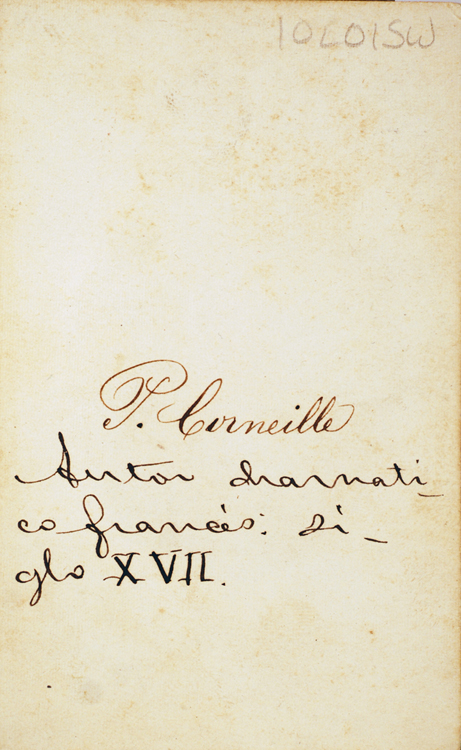 10L01SW
P. Corneille
Autor dramati_
co francés: si_
glo XVII.